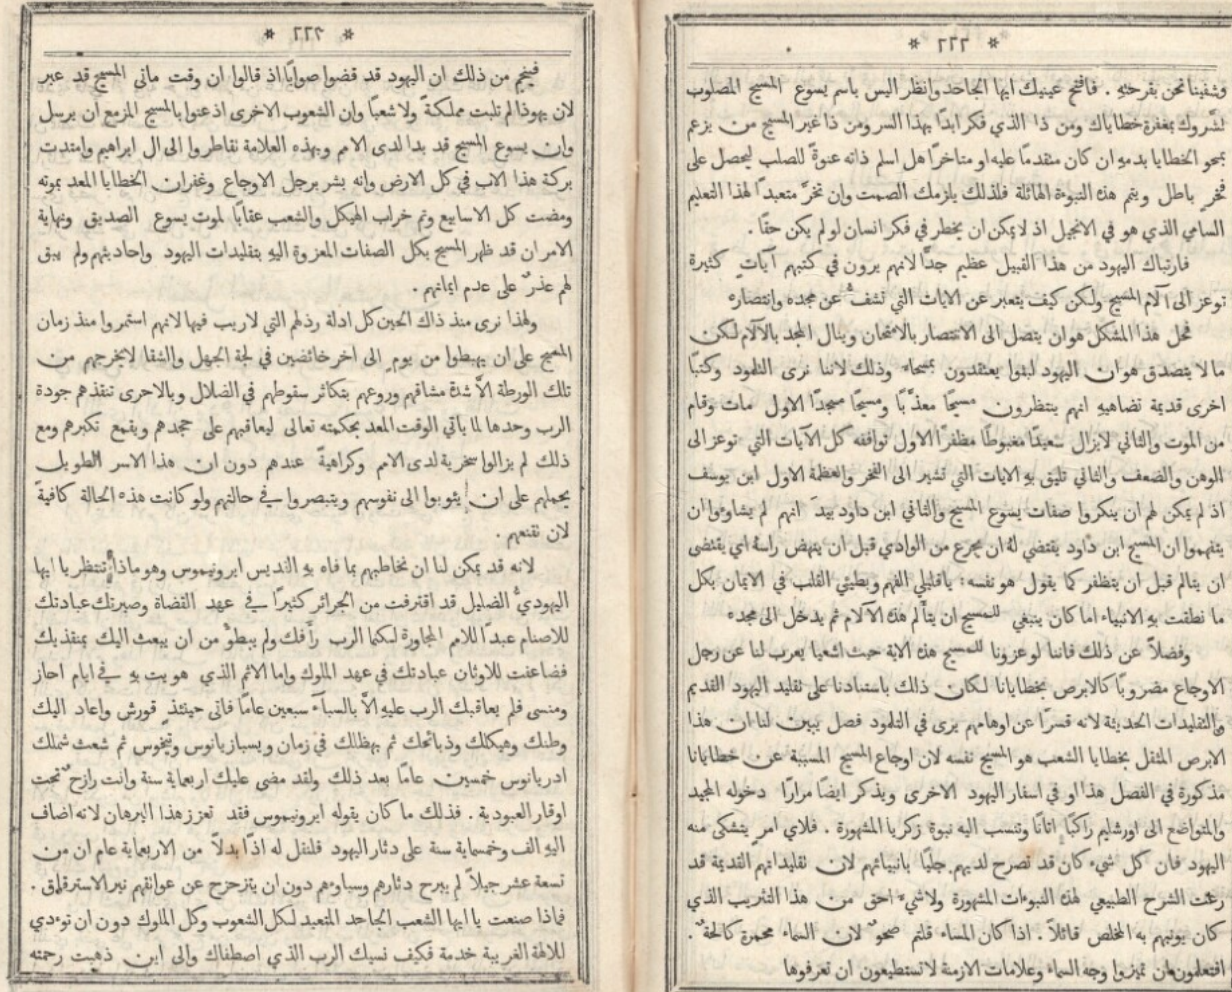 * ٢٢٢ *
وشفينا نحن بقرحته . فافتح عينيك ايها الجاحد وانظر اليس باسم يسوع المسيح المصلوب
نشروك بمغفرة خطاياك ومن ذا الذي فكر ابدًا بهذا السر ومن ذا غير المسيح من يزعم
بمحو الخطايا بدمه وان كان متقدمًا عليه او متاخرًا هل اسلم ذاته عنوةً للصلب ليحصل على
فخرٍ باطل ويتم هذه النبوءة الهائلة فلذلك يلزمك الصمت وان تخرَّ متعبدًا لهذا التعليم
السامي الذي هو في الانجيل اذ لايمكن ان يخطر في فكر انسان لو لم يكن حقًا .
فارتباك اليهود من هذا القبيل عظيم جدًّا لانهم يرون في كتبهم آيات كثيرة
توعز الى آلام المسيح ولكن كيف يتعبر عن الايات التي تشف عن مجده وانتصاره
فحل هذا المشكل هو ان يتصل الى الانتصار بالامتحان وينال المجد بالآلام لكن
ما لا يتصدق هو ان اليهود لبثوا يعتقدون بمسحاء وذلك لاننا نرى التلمود وكتبًا
اخرى قديمة تضاهيه انهم ينتظرون مسيحًا معذبًا ومسيحًا ممجدًا الاول مات وقام
من الموت والثاني لايزال سعيدًا مغبوطًا مظفرًا الاول توافقه كل الآيات التي توعز الى
الوهن والضعف والثاني تليق به الايات التي تشير الى الفخر والعظمة الاول ابن يوسف
اذ لم يمكن لهم ان ينكروا صفات يسوع المسيح والثاني ابن داود بيدَ انهم لم يشاءوا ان
يفهموا ان المسيح ابن داود يقتضي له ان يجرع من الوادي قبل ان ينهض راسه اي يقتضي
ان يتالم قبل ان يتظفر كما يقول هو نفسه : ياقليلي الفهم وبطيئي القلب في الايمان بكل
ما نطقت به الانبياء اما كان ينبغي للمسيح ان يتألم هذه الآلام ثم يدخل الى مجده
وفضلاً عن ذلك فاننا لو عزونا للمسيح هذه الاية حيث اشعيا يعرب لنا عن رجل
الاوجاع مضروبًا كالابرص بخطايانا لكان ذلك باستنادنا على تقليد اليهود القديم
والتقليدات الحديثة لانه قسرًا عن اوهامهم يرى في التلمود فصل يبين لنا ان هذا
الابرص المثقل بخطايا الشعب هو المسيح نفسه لان اوجاع المسيح المسببة عن خطايانا
مذكورة في الفصل هذا او في اسفار اليهود الاخرى ويذكر ايضًا مرارًا دخوله المجيد
والمتواضع الى اورشليم راكبًا اتانًا وتنسب اليه نبوة زكريا المشهورة . فلاي امرٍ يتشكى منه
اليهود فان كل شيء كان قد تصرح لديهم جليًا بانبيائهم لان تقليداتهم القديمة قد
رعت الشرح الطبيعي لهذه النبوءات المشهورة ولاشيء احق من هذا التثريب الذي
كان يونبهم به المخلص قائلاً . اذا كان المساء قلتم صحو لان السماء محمرة كالحة .
افتعلمون ان تميزوا وجه السماء وعلامات الازمنة لا تستطيعون ان تعرفوها
* ٢٢٣ *
فينجم من ذلك ان اليهود قد قضوا صوابًا اذ قالوا ان وقت ماتى المسيح قد عبر
لان يهوذا لم تلبث مملكةً ولا شعبًا وان الشعوب الاخرى اذعنوا بالمسيح المزمع ان يرسل
وان يسوع المسيح قد بدا لدى الامم وبهذه العلامة تقاطروا الى ال ابراهيم وامتدت
بركة هذا الاب في كل الارض وانه بشر برجل الاوجاع وغفران الخطايا المعد بموته
ومضت كل الاسابيع وتم خراب الهيكل والشعب عقابًا لموت يسوع الصديق ونهاية
الامر ان قد ظهر المسيح بكل الصفات المعزوة اليه بتقليدات اليهود واحاديثهم ولم يبق
لهم عذرٌ على عدم ايمانهم .
ولهذا نرى منذ ذاك الحين كل ادلة رذلهم التي لاريب فيها لانهم استمروا منذ زمان
المسيح على ان يهبطوا من يوم الى اخر خائضين في لجة الجهل والشقا لايخرجهم من
تلك الورطة الاَّ شدة مشاقهم وروعهم بتكاثر سقوطهم في الضلال وبالاحرى تنقذهم جودة
الرب وحدها لما ياتي الوقت المعد بحكمته تعالى ليعاقبهم على جحدهم ويقمع تكبرهم ومع
ذلك لم يزالوا سخرية لدى الامم وكراهيةً عندهم دون ان هذا الاسر الطويل
يحملهم على ان يثوبوا الى نفوسهم ويتبصروا في حالتهم ولو كانت هذه الحالة كافيةً
لان تقنعهم .
لانه قد يمكن لنا ان نخاطبهم بما فاه به القديس ايرونيموس وهو ماذا تنتظر يا ايها
اليهودي الضليل قد اقترفت من الجرائر كثيرًا في عهد القضاة وصيرتك عبادتك
للاصنام عبدًا للامم المجاورة لكنما الرب رأفك ولم يبطؤ من ان يبعث اليك بمنقذيك
فضاعفت للاوثان عبادتك في عهد الملوك واما الاثم الذي هويت به في ايام احاز
ومنسى فلم يعاقبك الرب عليه الاَّ بالسباء سبعين عامًا فاتى حينئذٍ قورش واعاد اليك
وطنك وهيكلك وذبائحك ثم بهظلك في زمان ويسبازيانوس وتيخوس ثم شعث شملك
ادريانوس خمسين عامًا بعد ذلك ولقد مضى عليك اربعماية سنة وانت رازح تحت
اوقار العبودية . فذلك ما كان يقوله ايرونيموس فقد تعزز هذا البرهان لانه اضاف
اليه الف وخمسماية سنة على دثار اليهود فلنقل له اذًا بدلاً من الاربعماية عام ان من
تسعة عشر جيلاً لم يبرح دثارهم وسباوءهم دون ان يتزحزح عن عواتقهم نير الاسترقاق .
فماذا صنعت يا ايها الشعب الجاحد المتعبد لكل الشعوب وكل الملوك دون ان توءدي
للالهة الغريبة خدمة فكيف نسيك الرب الذي اصطفاك والى اين ذهبت رحمته